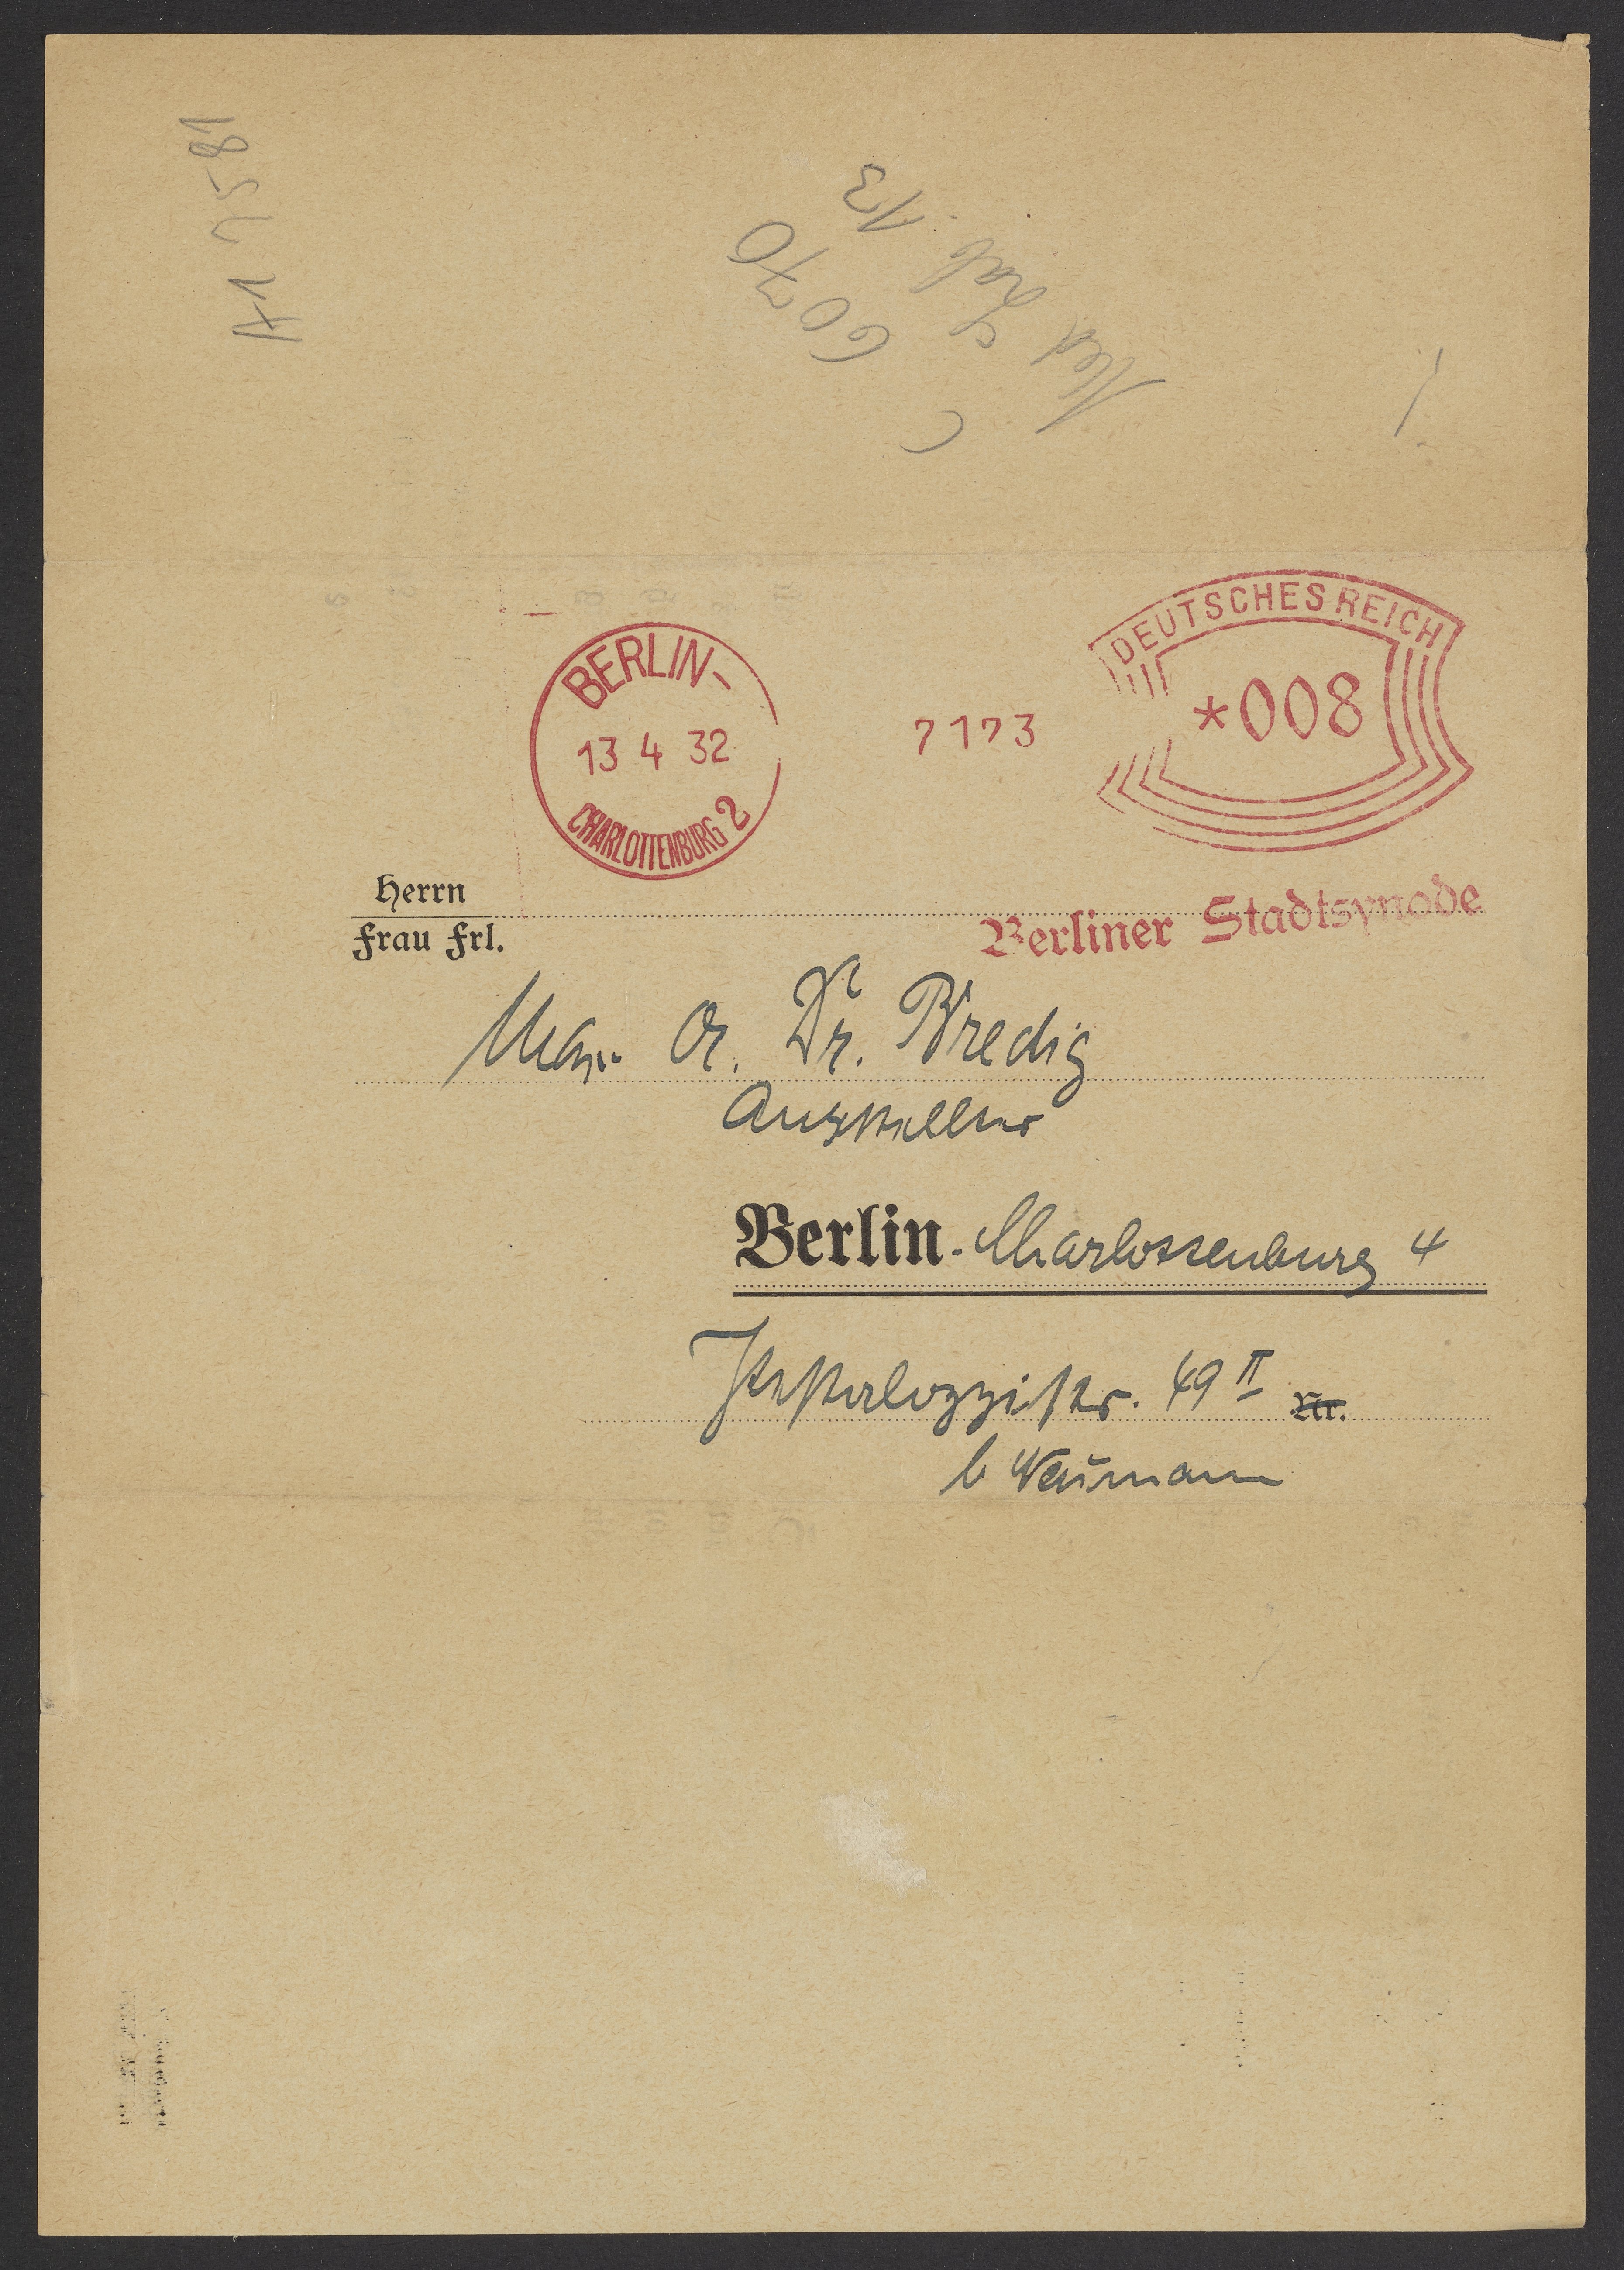 A1 7581
13
C 6070
BERLIN-
13 4 32
CHARLOTTENBURG 2
7173
DEUTSCHES REICH
*008
Berliner Stadtsynode
Herrn
Frau Frl.
Dr. Bredig
Berlin-Charlottenburg 4
Pestalozzistr. 49 II Nr.
b Neumann